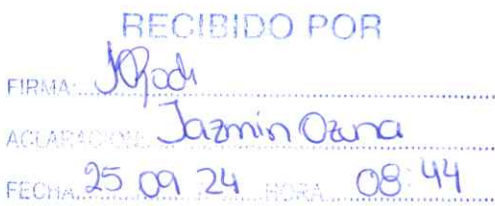 RECIBIDO POR
FIRMA:
ACLARACION: Jazmin Ozuna
FECHA 25 09 24 HORA 08:44